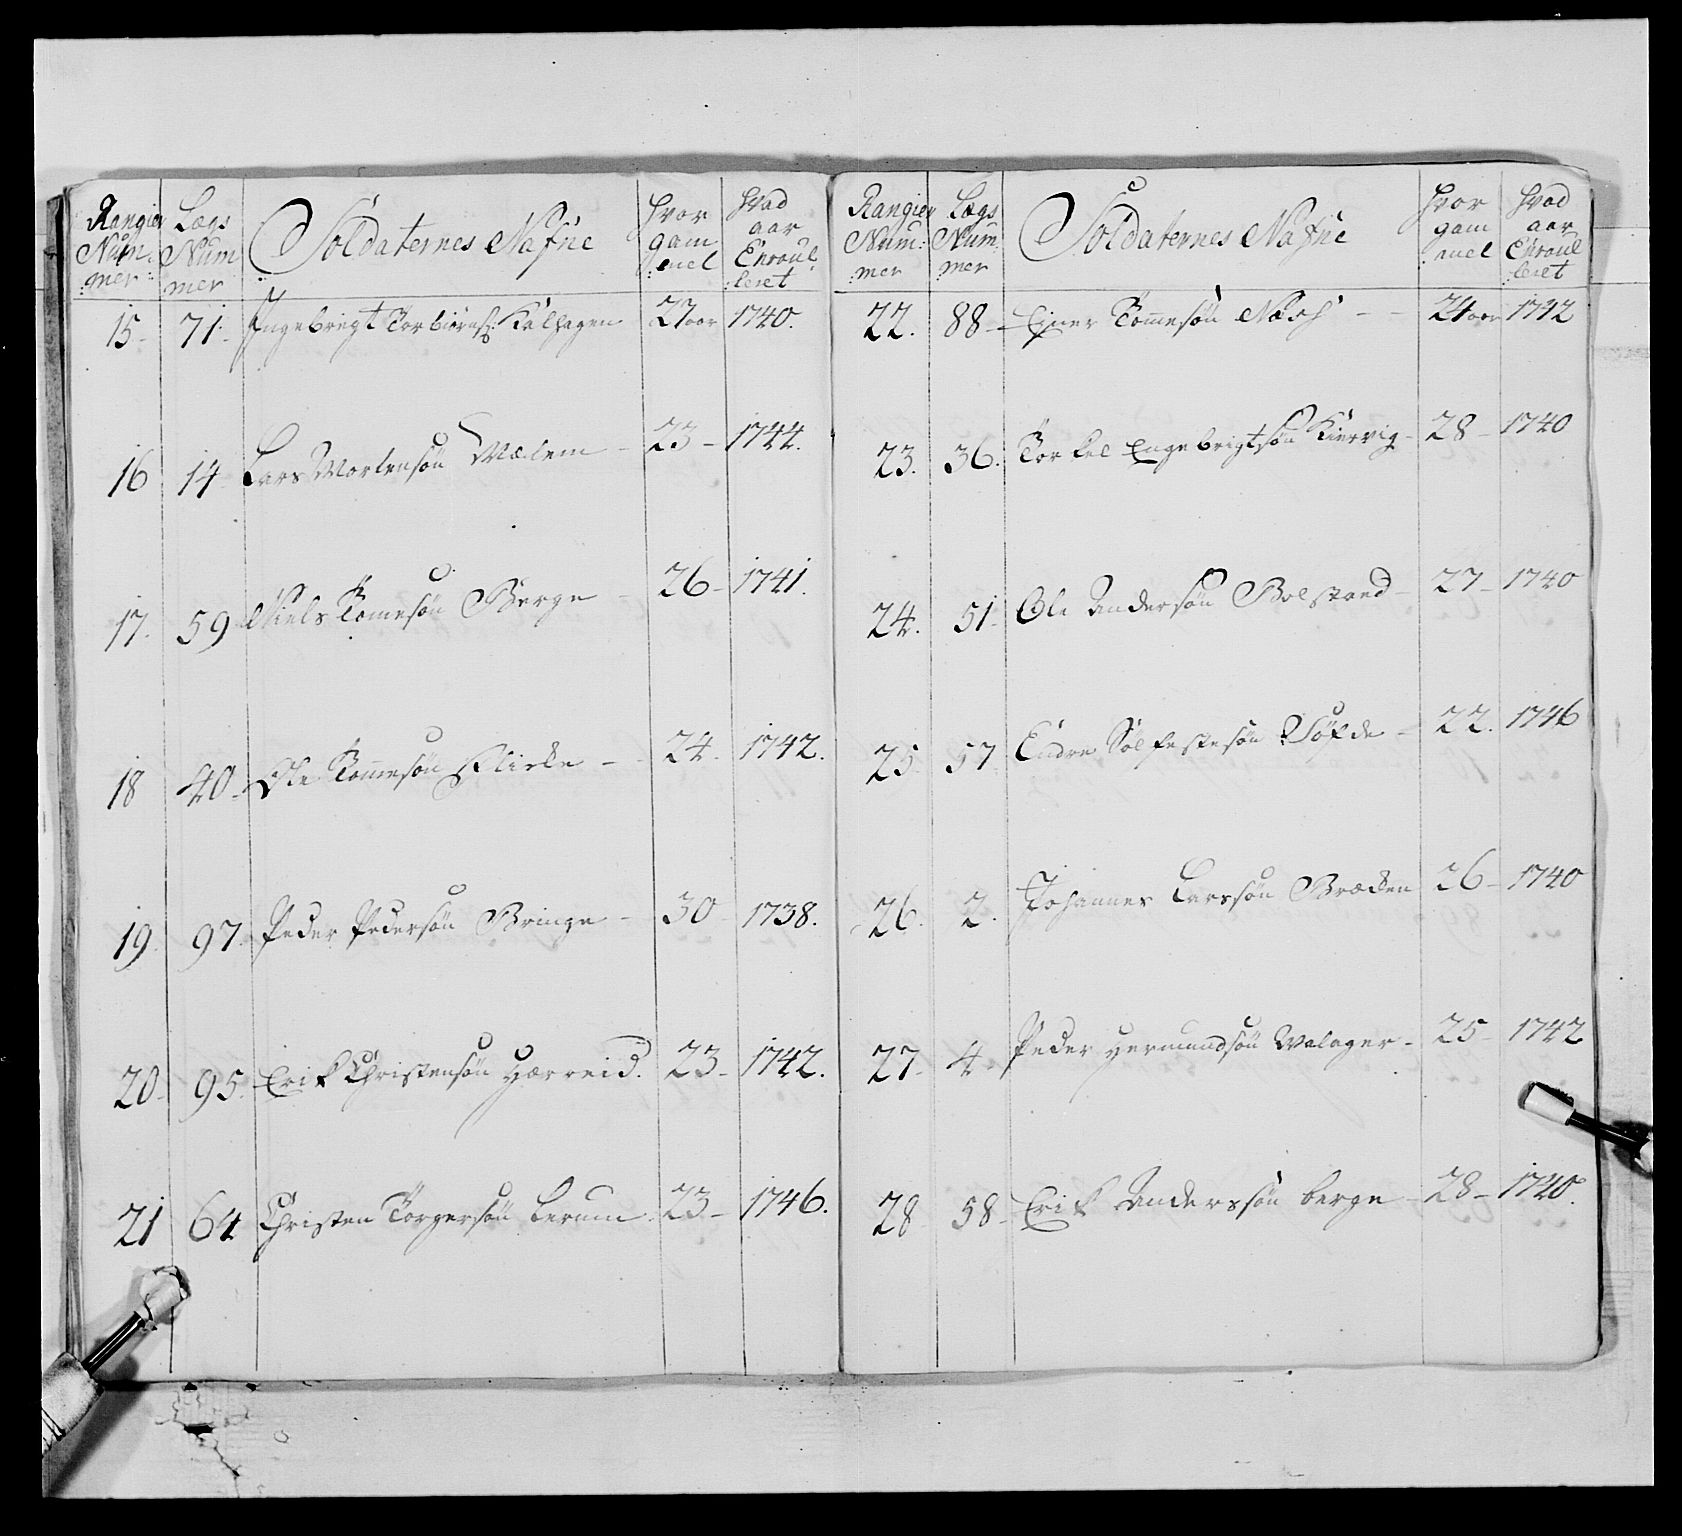 Rangier Num: mer: Lægs Num mer Soldaternes Nafne Hvor gam :mel Hvad aar Enroul: leret
15- 71- Ingebrigt Torbiörns: Kalhagen 27 aar 1740.
16 14 Lars Mortensön Mælem - 23- 1744.
17. 59 Niels Tomesön Berge - 26- 1741.
18 40- Ole Tommesön Flicke - 24. 1742.
19. 97. Peder Pedersön Bringe - 30 1738.
20- 95. Erik Christensön Hærreid. 23- 1742.
21 64 Christen Torgersön Lerum. 23- 1746.
Rangier Num: mer Lægs Num: mer Soldaternes Nafne Hvor gam :mel Hvad aar Enroul :leret
22. 88- Einer Tommesön Næss - - 24 aar 1742
23. 36. Torkel Engebrigtsön Kiervig- 28- 1740
24. 51- Ole Andersön Bolstand- 27- 1740
25. 57 Endre Sölfestesön Töfde - 22. 1746
26. 2. Johannes Larssön Brækken 26- 1740
27- 4- Peder Hermundsön Walager- 25- 1742
28 58- Erik Anderssön berge - 28- 1740.